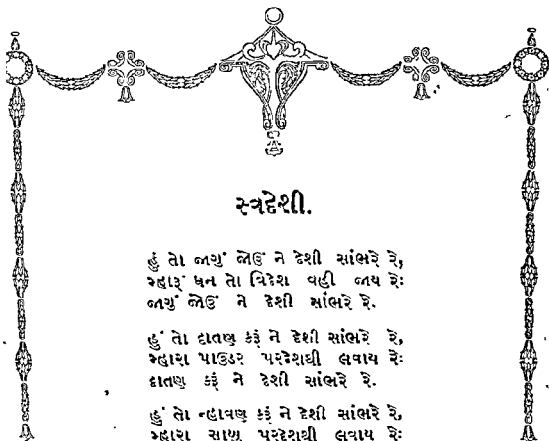 સ્વદેશી.
હું તો જાગું જોઉં ને દેશી સાંભરે રે,
મ્હારૂં ધન તો વિદેશ વહી જાય રેઃ
જાગું જોઉં ને દેશી સાંભરે રે.
હું તો દાતણ કરૂં ને દેશી સાંભરે રે,
મ્હારા પાઉડર પરદેશથી લવાય રેઃ
દાતણ કરૂં ને દેશી સાંભરે રે.
હું તો ન્હાવણ કરૂં ને દેશી સાંભરે રે,
મ્હારા સાબુ પરદેશથી લવાય રેઃ